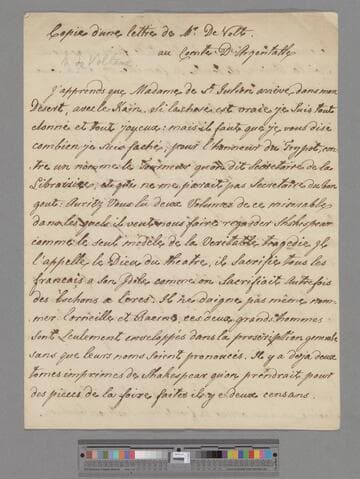 Copie d'une lettre de Mr. De Volt.
au Comte D'Argentalle
M. de Voltaire
J'apprends que Madame de St. Julien arrive dans mon
Désert, avec le Kain. Si la chose est vraie, je suis tout
étonné et tout joyeux: mais il faut que je vous dise
combien je suis faché, pour l'honneur du Tripot, con
tre un nommé le Tourneur qu'on dit Secretaire de la
Librairie, et qui ne me parait pas Secretaire du bon
gout. Auriez vous lu deux Volumes de ce misérable
dans lesquels il veut nous faire regarder Shakespear
comme le seul modèle de la Veritable tragedie. Il
l'appelle le Dieu du theatre, il Sacrifie tous les
francais a Son Idole comme on Sacrifiait Autrefois
des Cochons a Cérès. Il ne daigne pas même nom
mer Corneille et Racine, ces deux grands hommes
Sont Seulement enveloppés dans la proscription generale
sans que leurs noms Soient prononcés. Il y a deja deux
tomes imprimés de Shakespear qu'on prendrait pour
des pieces de la foire faites il y a deux cens ans.